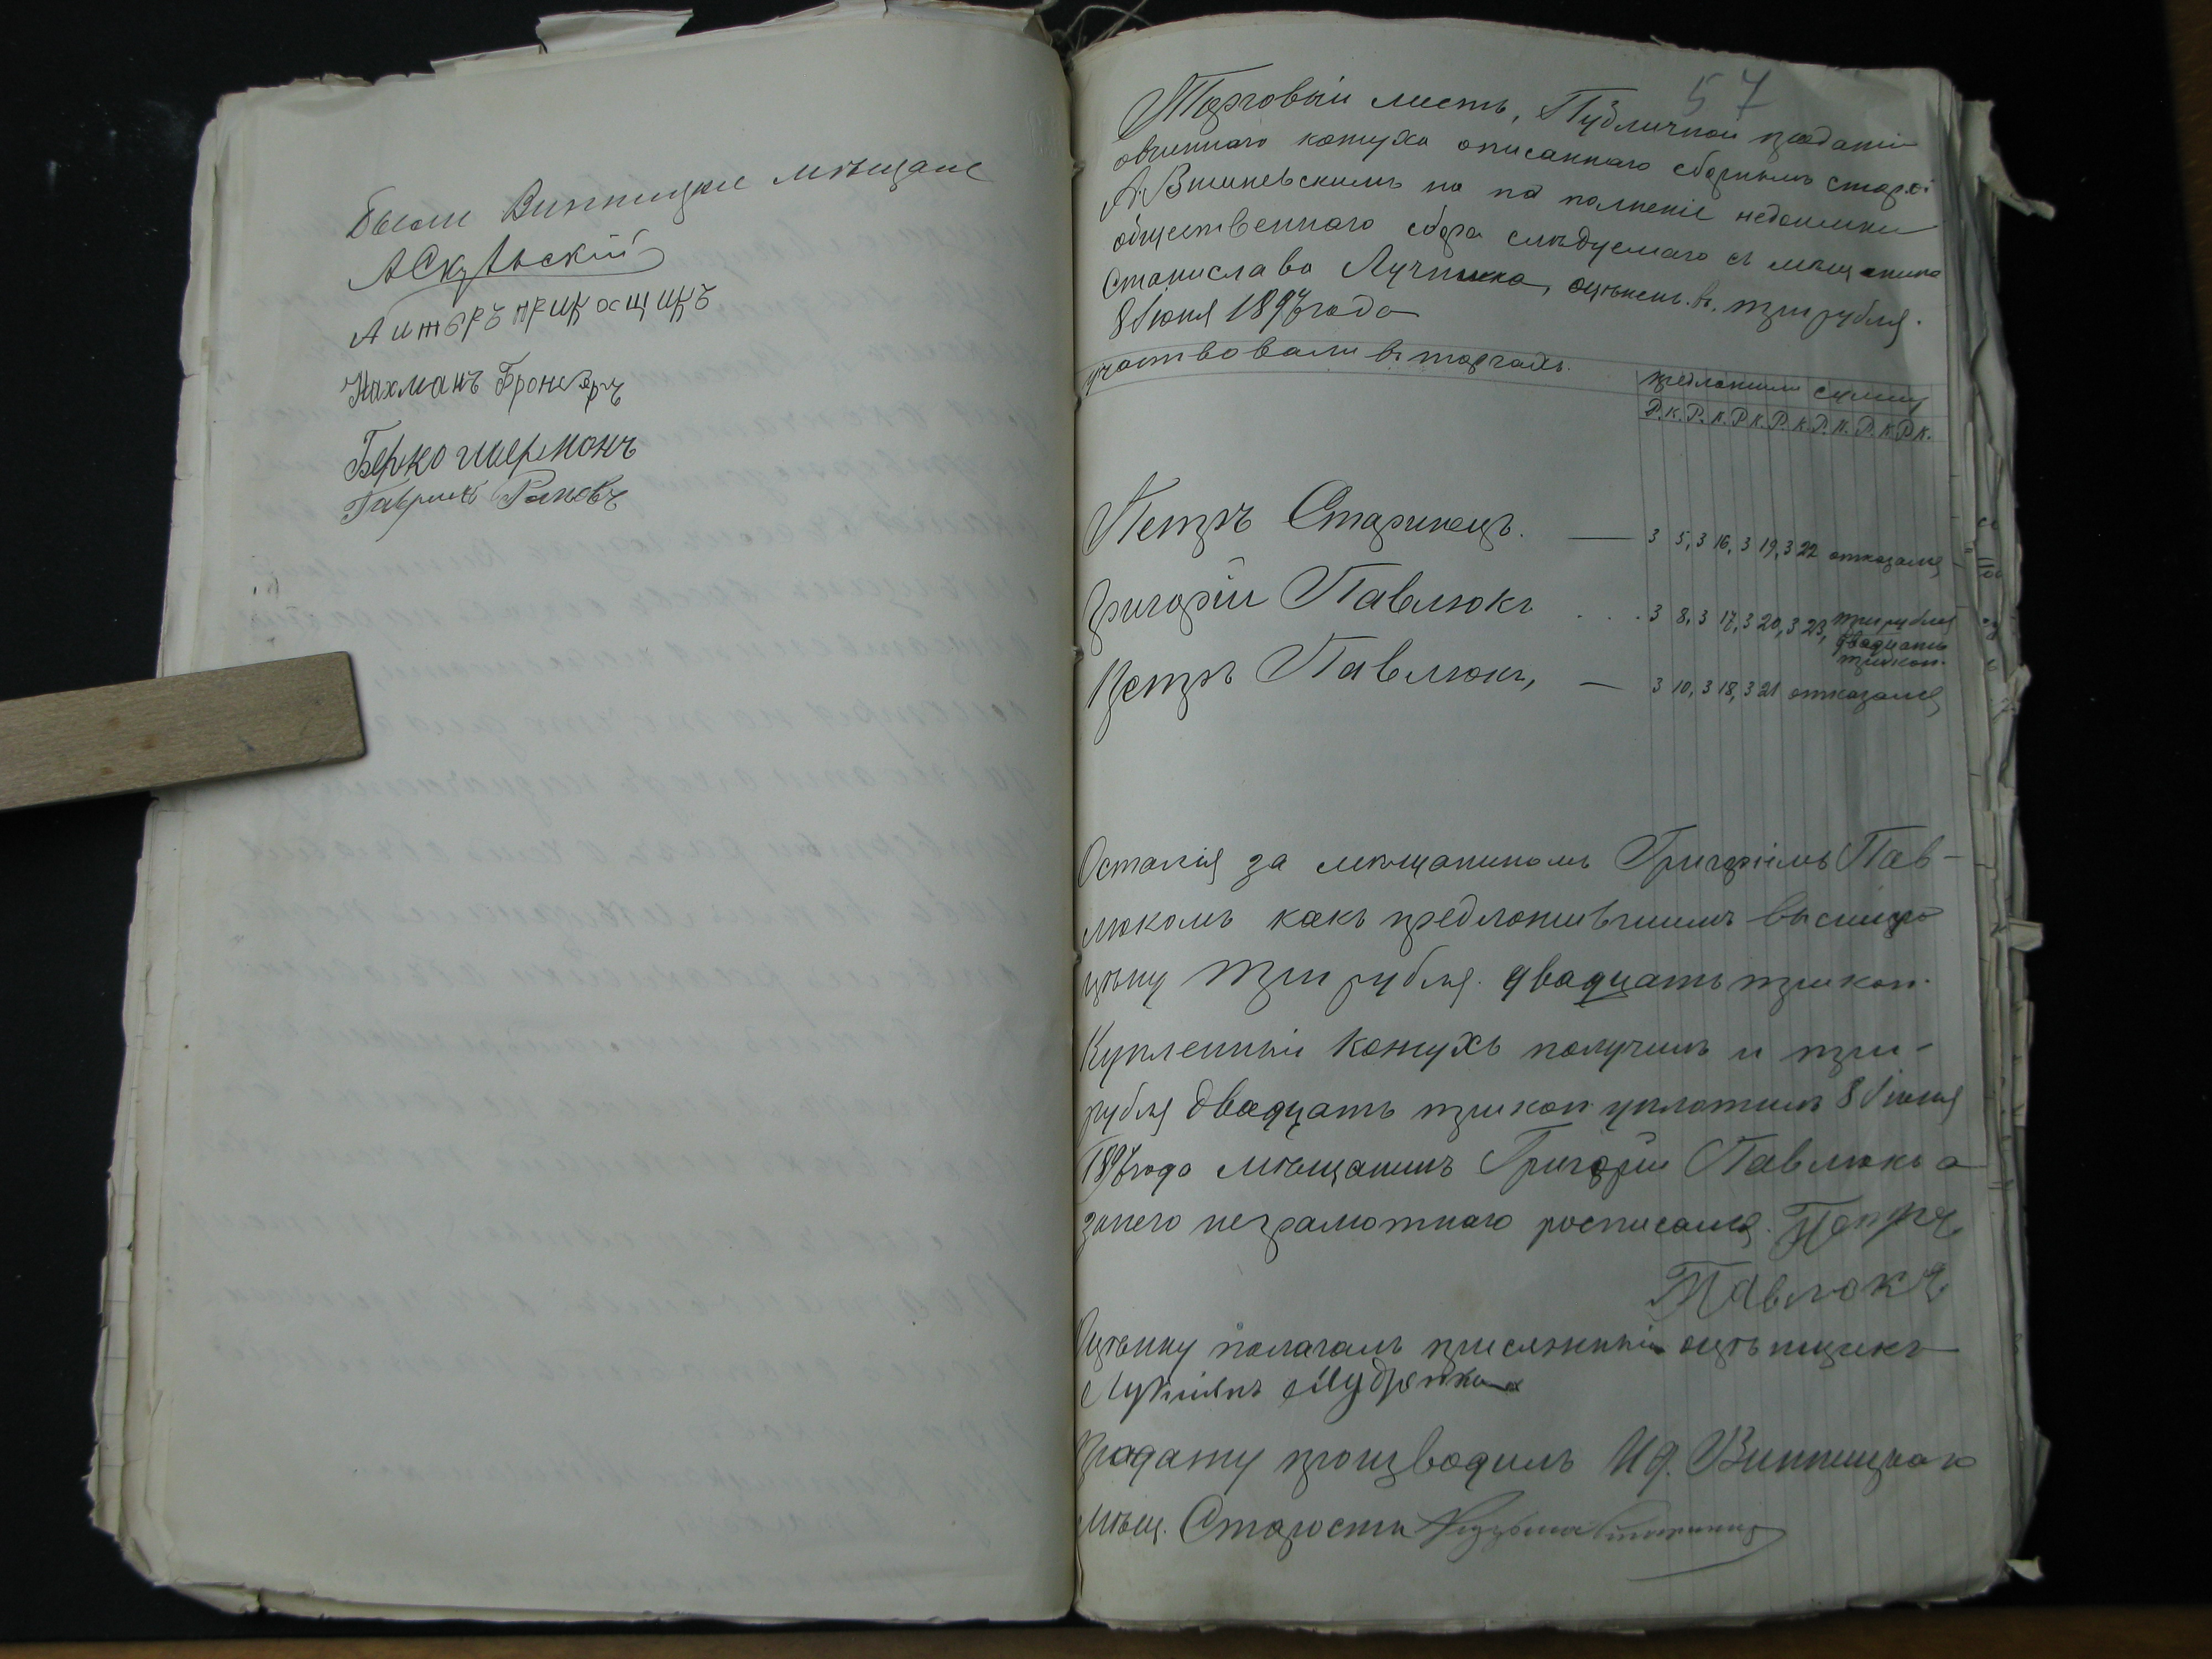 были Винницкие мѣщане
АСкульскій
Аитеръ прикащикъ
Нахманъ Бронеръ
Берко шерманъ
Гавриилъ Рановъ
57
Торговый листъ, Публичной продажи
овчиннаго кожуха описаннаго сборнымъ старо:
А. Вишневскимъ на по полненіе недоимки
общественнаго сбора слѣдуемаго съ мѣщанина
Станислава Лучника, оцѣнен. въ. три рубля.
8 Іюня 1897 года
участвовали въ торгахъ.
предложили сумму
Р. К. Р. К. Р К. Р. К. Р. К. Р. К. Р К.
Петръ Старинецъ. — 3 5, 3 16, 3 19, 3 22 отказался
Григорій Павлюкъ . . . 3 8, 3 17, 3 20, 3 23, три рубля
двадцать
три коп.
Петръ Павлюкъ, — 3 10, 3 18, 3 21 отказался
Остался за мѣщаниномъ Григоріемъ Пав-
люкомъ какъ предложившимъ высшую
цѣну три рубля. двадцать три коп.
Купленный кожухъ получилъ и три-
рубля двадцать три коп уплотилъ 8 Іюня
1897 года мѣщанинъ Григорій Павлюкъ а
занего неграмотнаго росписался. Петръ
Павлюкъ
Оцѣнку полагалъ присяжный оцѣнщикъ
Лукіянъ
Продажу производилъ Ид. Винницкаго
мѣщ. Старосты